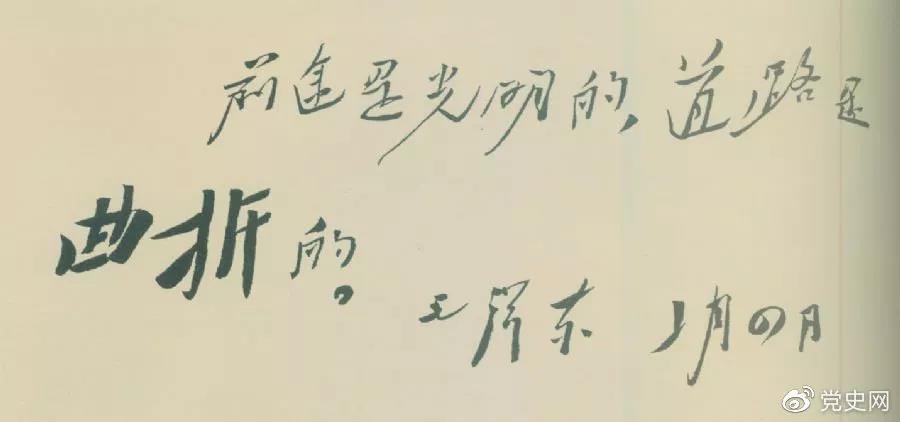 前途是光明的,道路是
曲折的。
毛泽东 月四日
党史网